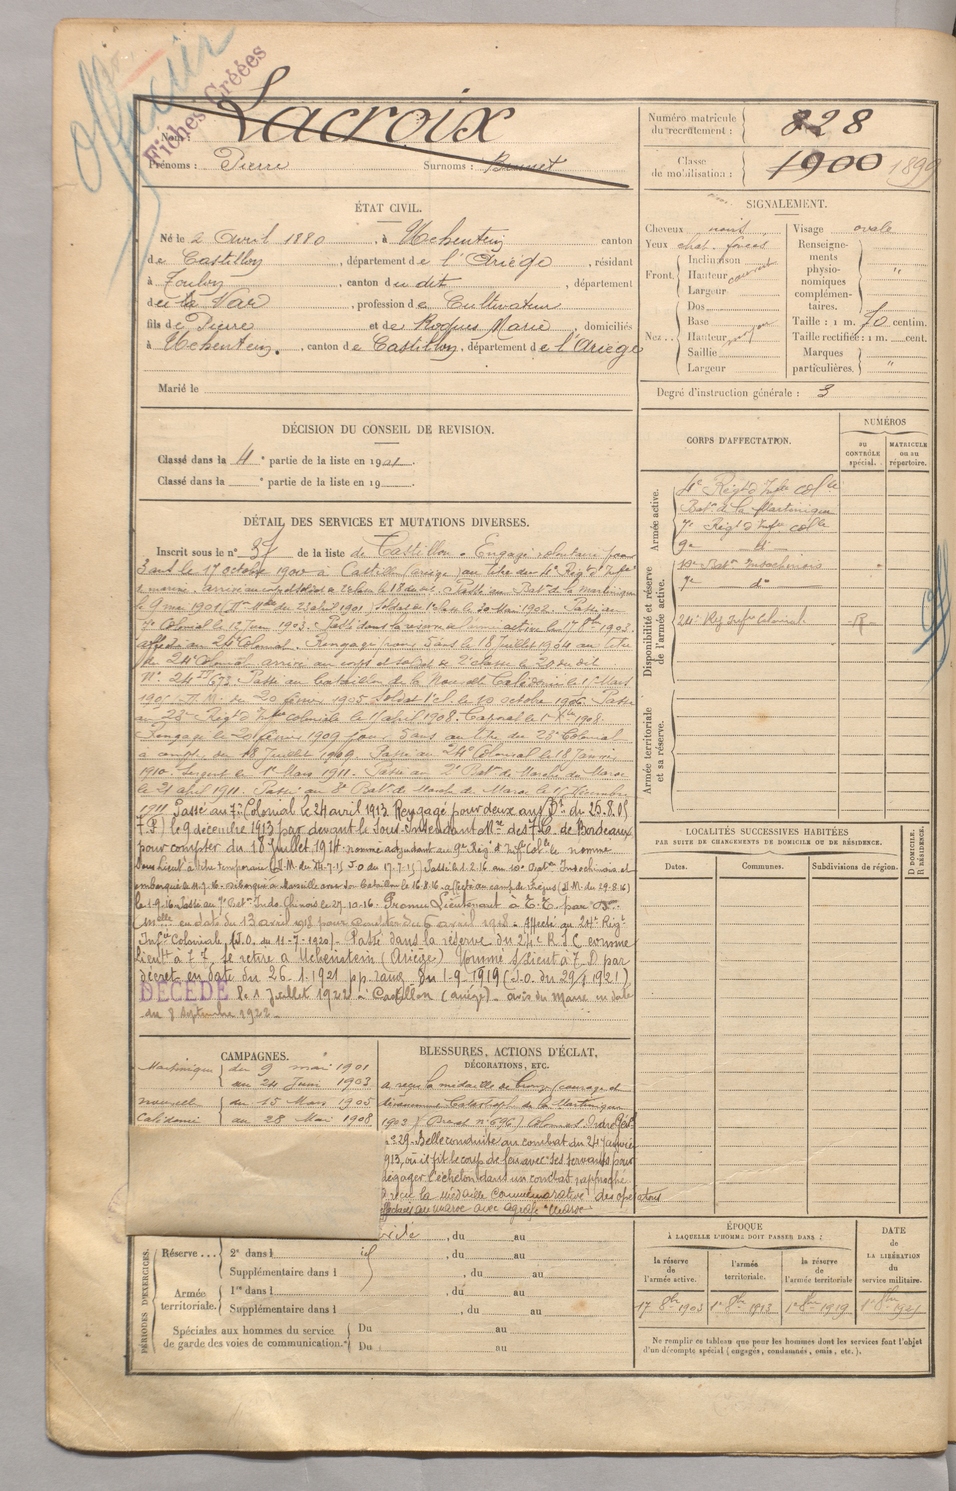 Officier
Fiches Créées
Nom : Lacroix
Prénoms : Pierre Surnoms : Bennet
Numéro matricule du recrutement : 828
Classe de mobilisation : 1900 1899
ÉTAT CIVIL.
Né le 2 Avril 1880, à Uchentein canton
de Castillon, département de l'Ariège, résidant
à Toulon, canton du dit, département
du Var, profession de Cultivateur
fils de Pierre et de Roques Marie, domiciliés
à Uchentein, canton de Castillon, département de l'Ariège
Marié le
SIGNALEMENT.
Cheveux noirs
Yeux chat. foncés
Front. Inclinaison
Hauteur couvert
Largeur
Nez Dos
Base
Hauteur moyen
Saillie
Largeur
Visage ovale
Renseignements physionomiques complémentaires. "
Taille : 1 m. 70 centim.
Taille rectifiée : 1 m. cent.
Marques particulières. "
Degré d'instruction générale : 3
DÉCISION DU CONSEIL DE REVISION.
Classé dans la 4e partie de la liste en 1901.
Classé dans la e partie de la liste en 19
DÉTAIL DES SERVICES ET MUTATIONS DIVERSES.
Inscrit sous le n° 37 de la liste de Castillon. Engagé volontaire pour
3 ans le 17 octobre 1900 à Castillon (Ariège) au titre du 4e Régt d'Infie
de marine. arrivé au corps et soldat de 2e classe le 18 du dit. Passé au Batn de la Martinique
le 9 mai 1901 du 23 avril 1901) Soldat de 1e classe le 20 Mars 1902. Passé au
7e Colonial le 12 Juin 1903. Passé dans la réserve de l'armée active le 17 8bre 1903.
affecté au 24e Colonial. Rengagé pour 3 ans le 18 Juillet 1904 au titre
du 24e Colonial arrivé au corps et soldat de 2e classe le 20 du dit
N° 24 673. Passé au bataillon de la Nouvelle Calédonie le 1er Mars
1905 D. M. du 20 février 1905 Soldat 1e cl. le 10 octobre 1906. Passé
au 23e Régt d'Infie coloniale le 11 avril 1908. Caporal le 1er Xbre 1908.
Rengagé le 21 février 1909 pour 5 ans au titre du 23e Colonial
à compt. du 18 Juillet 1909. Passé au 24e Colonial le 18 Janvier
1910. Sergent le 1er Mars 1911. Passé au 2e Batn de Marche du Maroc
le 21 avril 1911. Passé au 8e Batn de Marche du Maroc le 1er Décembre
1911 Passé au 7e Colonial le 24 avril 1913 Rengagé pour deux ans (Dt du 25.8.05
T.P) le 9 décembre 1913 par devant le Sous-Intendant Mre des T.C. de Bordeaux
pour compter du 18 Juillet 1914. nommé adjudant au 9e Régt d'Infie Colle nommé
Sous Lieutt à titre temporaire (D.M. du 14.7.15 J.O du 17.7.15) Passé le 1.2.16 au 10e Batn Indochinois et
embarqué le débarqué à Marseille avec son bataillon le 16.8.16. affecté au camp de Fréjus (D.M. du 29.8.16)
le 1.9.16. Passé au 7e Batn Indo Chinois le 27.10.16. Promu Lieutenant à T.T. par Don
Mielle en date du 13 avril 1918 pour compter du 6 avril 1918. Affecté au 24e Régt
Infie Coloniale (J.O. du 11-7-1920). Passé dans la réserve du 24e R.I.C comme
lieutt à T.T. se retire à Uchentein (Ariège) Nommé s/lieut à T.D par
décret en date du 26.1.1921 pp. rang du 1-9-1919 (J.O. du 29/1 1921)
DÉCÉDÉ le 1 Juillet 1922 à Castillon (Ariège) - avis du Maire en date
du 8 Septembre 1922.
CORPS D'AFFECTATION.
NUMÉROS
au contrôle spécial.
MATRICULE ou au répertoire.
Armée active.
4e Régt d'Infie colle
Batn de la Martinique
7e Régt d'Infie colle
9e - d° -
Disponibilité et réserve de l'armée active.
10e Batn Indochinois
7e d°
24e Rég Infie Coloniale
Armée territoriale et sa réserve.
LOCALITÉS SUCCESSIVES HABITÉES
PAR SUITE DE CHANGEMENTS DE DOMICILE OU DE RÉSIDENCE.
Dates. Communes. Subdivisions de région.
D DOMICILE. R RÉSIDENCE.
CAMPAGNES.
Martinique du 9 mai 1901
au 24 Juin 1903
nouvelle Calédonie du 15 Mars 1905
au 28 Mai 1908
BLESSURES, ACTIONS D'ÉCLAT,
DÉCORATIONS, ETC.
a reçu la médaille de bronze (courage et
dévouement Catastrophe de la Martinique
1902) (Brevet n° 696)
n° 29. Belle conduite au combat du 24 Janvier
1913, où il fit le coup de feu avec ses servants pour
dégager l'échelon dans un combat rapproché
a reçu la médaille commémorative des opérations
effectuées au maroc avec agrafe "Maroc"
PÉRIODES D'EXERCICES.
, du au
Réserve ... 2e dans l
Supplémentaire dans l , du au
Armée territoriale. 1re dans l , du au
Supplémentaire dans l , du au
Spéciales aux hommes du service de garde des voies de communication. Du au
Du au
ÉPOQUE
À LAQUELLE L'HOMME DOIT PASSER DANS :
la réserve de l'armée active.
l'armée territoriale.
la réserve de l'armée territoriale
DATE de LA LIBÉRATION du service militaire.
17 8bre 1903
1er 8bre 1913
1er 8bre 1919
Ne remplir ce tableau que pour les hommes dont les services font l'objet
d'un décompte spécial (engagés, condamnés, omis, etc.).